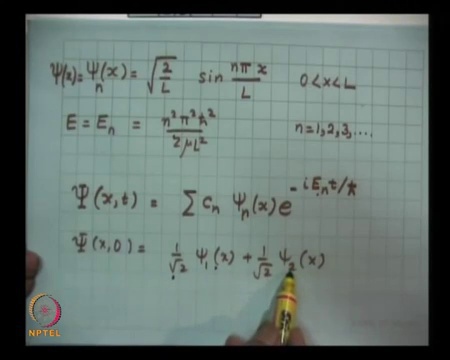 Ψ(x)= Ψn(x) = √(2/L) sin nπx/L 0<x<L
E = En = n²π²ħ²/2μL² n=1,2,3,....
Ψ(x,t) = Σ Cn Ψn(x) e^-iEnt/ħ
Ψ(x,0) = 1/√2 Ψ1(x) + 1/√2 Ψ2(x)
NPTEL